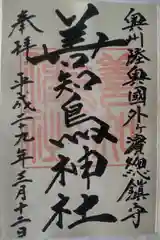 奥州陸奥國外ヶ濱總鎮守
善知鳥神社
奉拝 平成二九年三月十二日